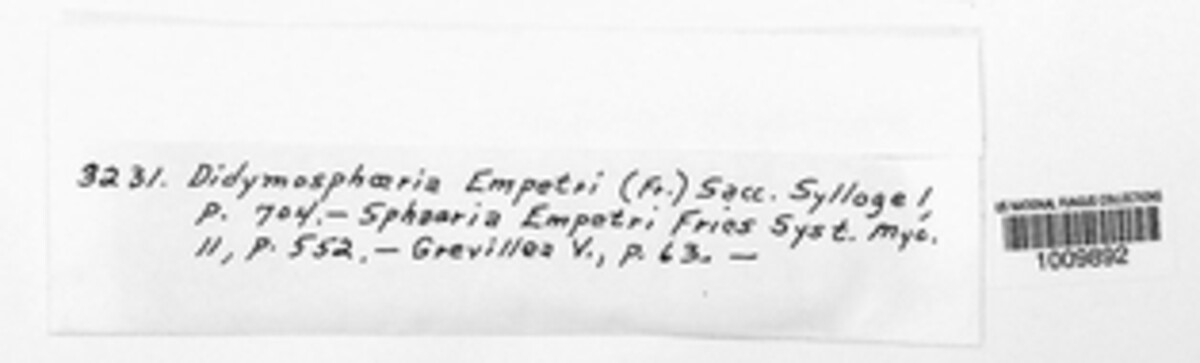 3231. Didymosphæria Empetri (Fr.) Sacc. Sylloge I,
p. 704. — Sphæria Empetri Fries Syst. Myc.
II, p. 552. — Grevillea V., p. 63. —
US NATIONAL FUNGUS COLLECTIONS
1009892